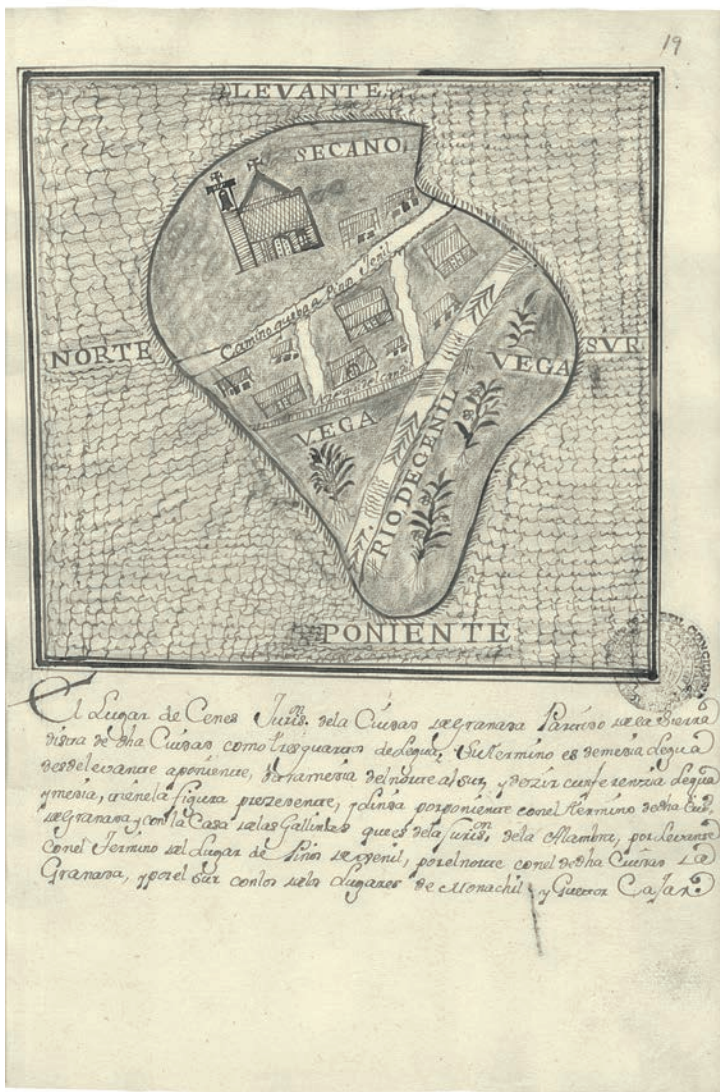 19
LEVANTE
SECANO
Camino que ba a Pinos Jenil
NORTE
SUR
VEGA
VEGA
RIO DE GENIL
PONIENTE
El Lugar de Cenes Juris.ⁿ dela Ciudad de Granada Partido de la Sierra
dista de dha Ciudad como tres quartos de Legua, Su termino es de media Legua
desde levante a poniente, otra media del norte al sur, y de zircunferenzia legua
y media, tiene la figura prezedente, y linda por poniente con el término de dha Ciud.
de Granada y con la Casa de las Gallinas que es dela Juris.ⁿ dela Alambra, por Levante
con el Termino del Lugar de Pinos de Genil, por el norte con el de dha Ciudad de
Granada, y por el Sur con los de los Lugares de Monachil y Guetor Cajar